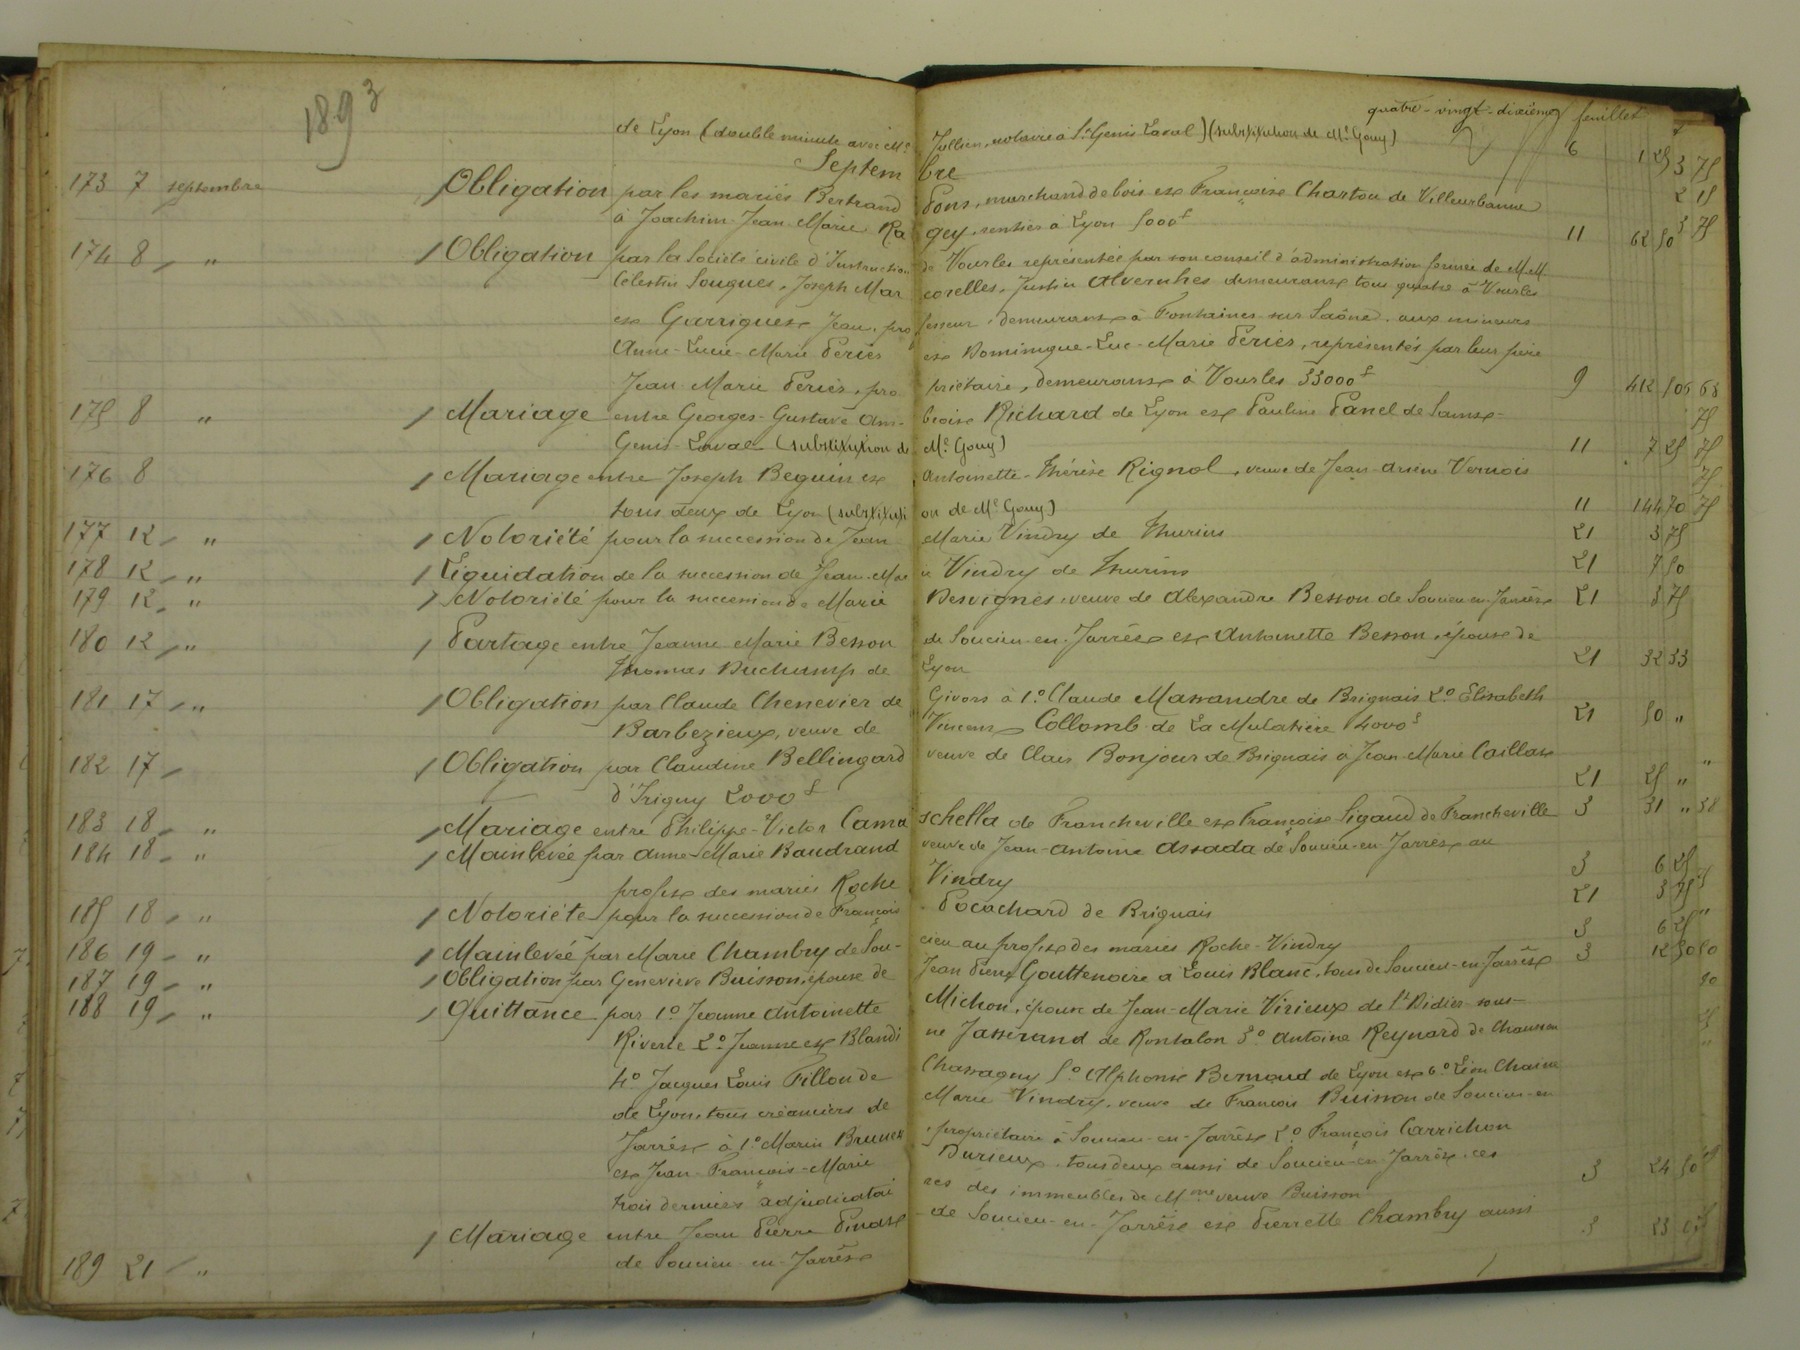 1893
quatre-vingt-dixième feuillet
de Lyon (double minute avec Me Jullien, notaire à St Genis Laval) (substitution de Me Gouy) 6 1 25 3 75
Septembre
173 7 septembre Obligation par les mariés Bertrand Pons, marchand de bois et Françoise Charton de Villeurbanne
à Joachim Jean Marie Ragey, rentier à Lyon 5000f 11 62 50 3 75
174 8 " Obligation par la Société civile d'Instruction de Vourles représentée par son conseil d'administration formée de M.M.
Célestin Sougues, Joseph Marcorelles, Justin Alvernhes demeurant tous quatre à Vourles
et Garrigues Jean, professeur, demeurant à Fontaines sur Saône, aux mineurs
Anne-Lucie-Marie Periès et Dominique-Luc-Marie Periès, représentés par leur père
Jean Marie Periès, propriétaire, demeurant à Vourles 33000f 9 412 50
175 8 " Mariage entre Georges-Gustave Ambroise Richard de Lyon et Pauline Panel de Saint-
Genis-Laval (substitution de Me Gouy) 11 7 25 75
176 8 Mariage entre Joseph Beguin et Antoinette-Thérèse Rignol, veuve de Jean Vernois
tous deux de Lyon (substitution de Me Gouy) 11 144 70 75
177 12 " Notoriété pour la succession de Jean Marie Vindry de Thurins 21 3 75
178 12 " Liquidation de la succession de Jean-Marie Vindry de Thurins 21 7 50
179 12 " Notoriété pour la succession de Marie Desvignes, veuve de Alexandre Besson de Soucieu-en-Jarrêst 21 3 75
180 12 " Partage entre Jeanne Marie Besson de Soucieu-en-Jarrêst et Antoinette Besson, épouse de
Thomas Duchamp de Lyon 21 32 33
181 17 " Obligation par Claude Chenevier de Givors à 1o Claude Massandre de Brignais 2o Elisabeth
Barbezieux, veuve de Vincent Collomb de La Mulatière 4000f 21 50 "
182 17 Obligation par Claudine Bellingard veuve de Claus Bonjour de Brignais à Jean-Marie Caillat
d'Irigny 2000f 21 25 "
183 18 " Mariage entre Philippe-Victor Camaschella de Francheville et Françoise Sigaud de Francheville 3 31 " 38
184 18 " Mainlevée par Anne-Marie Baudrand veuve de Jean-Antoine Assada de Soucieu-en-Jarrêst au
profit des mariés Roche Vindry 3 6 25
185 18 " Notoriété pour la succession de François Pocachard de Brignais 21 3 75
186 19 " Mainlevée par Marie Chambry de Soucieu au profit des mariés Roche-Vindry 3 6 25
187 19 " Obligation par Geneviève Buisson, épouse de Jean Pierre Gouttenoire à Louis Blanc, tous de Soucieu-en-Jarrêst 3 12 50 50
188 19 " Quittance par 1o Jeanne Antoinette Michon, épouse de Jean-Marie Virieux de St Didier-sous-
Riverie 2o Jeanne et Blandine Jasserand de Rontalon 3o Antoine Reynard de Chaussan
4o Jacques Louis Fillon de Chassagny 5o Alphonse Bernoud de Lyon et 6o Léon Chaine
de Lyon, tous créanciers de Marie Vindry, veuve de François Buisson de Soucieu-en
Jarrêst à 1o Marin Brunet, propriétaire à Soucieu-en-Jarrêst 2o François Carrichon
et Jean-François-Marie Durieux, tous deux aussi de Soucieu-en-Jarrêst, ces
trois derniers adjudicataires des immeubles de Mme veuve Buisson 3 24 50
189 21 " Mariage entre Jean Pierre Pinast de Soucieu-en-Jarrêst et Pierrette Chambry aussi
de Soucieu en-Jarrêst 3 23